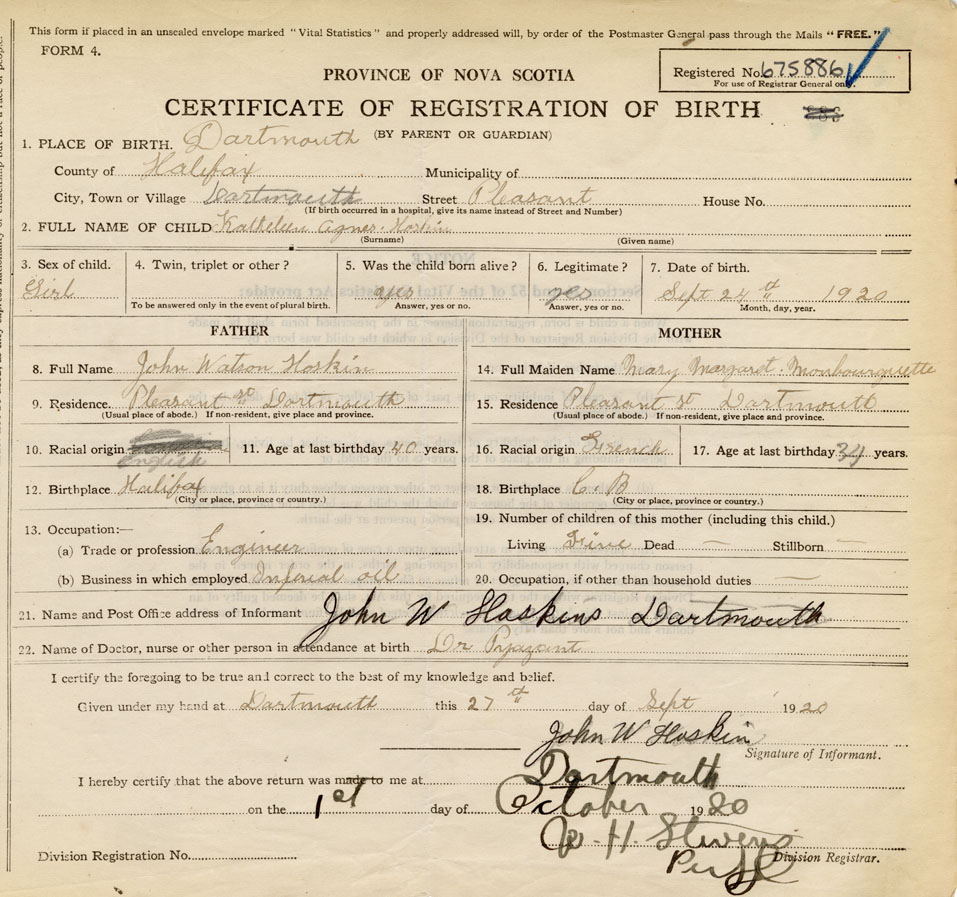 This form if placed in an unsealed envelope marked "Vital Statistics" and properly addressed will, by order of the Postmaster General pass through the Mails "FREE."
FORM 4.
Registered No. 675886
For use of Registrar General only.
PROVINCE OF NOVA SCOTIA
CERTIFICATE OF REGISTRATION OF BIRTH
(BY PARENT OR GUARDIAN)
1. PLACE OF BIRTH. Dartmouth
County of Halifax Municipality of
City, Town or Village Dartmouth Street Pleasant House No.
(If birth occurred in a hospital, give its name instead of Street and Number)
2. FULL NAME OF CHILD Kathelien Agnes Hoskin
(Surname) (Given name)
3. Sex of child. 4. Twin, triplet or other? 5. Was the child born alive? 6. Legitimate? 7. Date of birth.
Girl yes yes Sept 24th 1920
To be answered only in the event of plural birth. Answer, yes or no. Answer, yes or no. Month, day, year.
FATHER MOTHER
8. Full Name John Watson Hoskin 14. Full Maiden Name Mary Margaret Monbourquette
9. Residence. Pleasant st Dartmouth 15. Residence Pleasant st Dartmouth
(Usual place of abode.) If non-resident, give place and province. (Usual place of abode.) If non-resident, give place and province.
10. Racial origin english 11. Age at last birthday 40 years. 16. Racial origin French 17. Age at last birthday 34 years.
12. Birthplace Halifax 18. Birthplace C. B
(City or place, province or country.) (City or place, province or country.)
13. Occupation:— 19. Number of children of this mother (including this child.)
(a) Trade or profession Engineer Living Five Dead — Stillborn —
(b) Business in which employed Imperial oil 20. Occupation, if other than household duties —
21. Name and Post Office address of Informant John W Hoskins Dartmouth
22. Name of Doctor, nurse or other person in attendance at birth Dr
I certify the foregoing to be true and correct to the best of my knowledge and belief.
Given under my hand at Dartmouth this 27th day of Sept 1920
John W Hoskin
Signature of Informant.
I hereby certify that the above return was made to me at Dartmouth
on the 1st day of October 1920
W. H. Stevens
Division Registration No. Division Registrar.